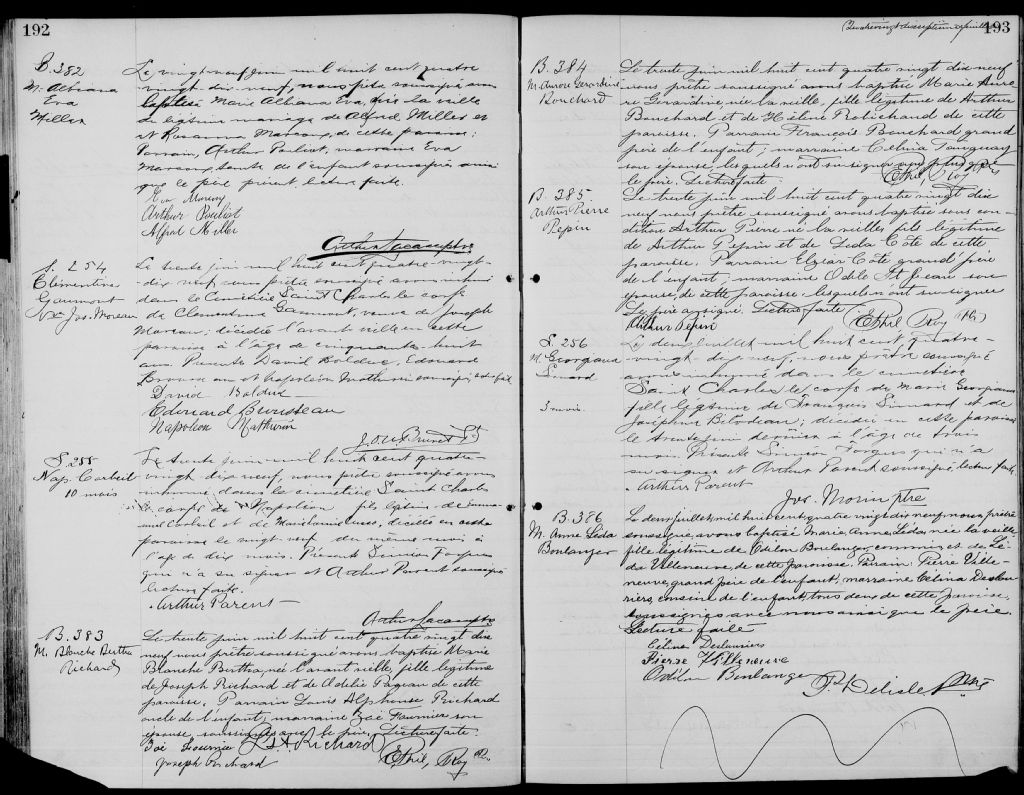 192
B. 382
M. Albiana
Eva
Miller
Le vingt neuf juin mil huit cent quatre
vingt-dix-neuf, nous prêtre soussigné avons
baptisé Marie Albiana Eva, née la veille
du légitime mariage de Alfred Miller et
et Rosanna Moreau, de cette paroisse;
Parrain, Arthur Pouliot, marraine Eva
Moreau, tante de l'enfant soussignés ainsi
que le père présent. Lecture faite.
Eva Moreau
Arthur Pouliot
Alfred Miller
Arthur Lacasse ptre
S. 254
Clementine
Gaumont
Vve Jos. Moreau
Le trente juin mil huit cent quatre-vingt-
dix neuf nous prêtre soussigné avons inhumé
dans le Cimetière Saint Charles le corps
de Clementine Gaumont, veuve de Joseph
Moreau; décédée l'avant veille en cette
paroisse à l'âge de cinquante-huit
ans. Présents David Bolduc, Edouard
et Napoléon Mathurin soussignés lecture faite
David Bolduc
Edouard Brousseau
Napoleon Mathurin
S 255
Nap. Corbeil
10 mois
Le trente juin mil huit cent quatre-
vingt dix neuf, nous prêtre soussigné avons
inhumé dans le cimetière Saint Charles
le corps de Napoléon fils légitime de
Corbeil et de Marie, décédé en cette
paroisse le vingt neuf du même mois à
l'âge de dix mois. Présents Siméon Forgues
qui n'a su signer et Arthur Parent soussigné
lecture faite.
Arthur Parent
Arthur Lacasse ptre
B. 383
M. Blanche Bertha
Richard
Le trente juin mil huit cent quatre vingt dix
neuf nous prêtre soussigné avons baptisé Marie
Blanche Bertha, née l'avant veille, fille légitime
de Joseph Richard et de Odélie Pageau de cette
paroisse. Parrain Louis Alphonse Richard
oncle de l'enfant, marraine Zoé Fournier son
épouse soussignés avec le père. Lecture faite.
Zoé Fournier Ls A Richard
Joseph Richard
Ethil, Roy Ptr.
193
B. 384
M. Aurore Gerardine
Bouchard
Le trente juin mil huit cent quatre vingt dix neuf
nous prêtre soussigné avons baptisé Marie Auro-
re Gerardine, née la veille, fille légitime de Arthur
Bouchard et de Hélène Robichaud de cette
paroisse. Parrain François Bouchard grand
père de l'enfant; marraine Celina Tanguay
son épouse, lesquels n'ont su signer non plus que
le père. Lecture faite.
Ethil, Roy Ptr
B. 385.
Arthur Pierre
Pepin
Le trente juin mil huit cent quatre vingt dix
neuf nous prêtre soussigné avons baptisé sous con-
dition Arthur Pierre né la veille fils légitime
de Arthur Pepin et de Léda Côté de cette
paroisse. Parrain Elzéar Côté grand'père
de l'enfant; marraine Odile St Jean son
épouse, de cette paroisse, lesquels n'ont su signer
Le père a signé. Lecture faite
Arthur Pepin
Ethil Roy Ptr
S 256
M. Georgiana
Simard
3 mois.
Le deux juillet mil huit cent quatre-
vingt dix neuf, nous prêtre soussigné
avons inhumé dans le cimetière
Saint Charles le corps de Marie Georgiana
fille légitime de François Simard et de
Josephine Bilodeau; décédée en cette paroisse
le trente juin dernier à l'âge de trois
mois. Présents Simeon Forgues qui n'a
su signer et Arthur Parent soussigné lecture faite.
Arthur Parent
Jos. Morin ptre
B. 386
M. Anne Léda
Boulanger
Le deux juillet mil huit cent quatre vingt dix neuf nous prêtre
soussigné, avons baptisé Marie, Anne, Léda, née la veille,
fille légitime de Odilon Boulanger, commis, et de Lé-
da Villeneuve, de cette paroisse. Parrain: Pierre Ville-
neuve, grand père de l'enfant, marraine Célina Deslau-
riers, cousine de l'enfant, tous deux de cette paroisse,
soussignés avec nous ainsi que le père.
Lecture faite
Célina Deslauriers
Pierre Villeneuve
Odilon Boulanger
Delisle Ptre